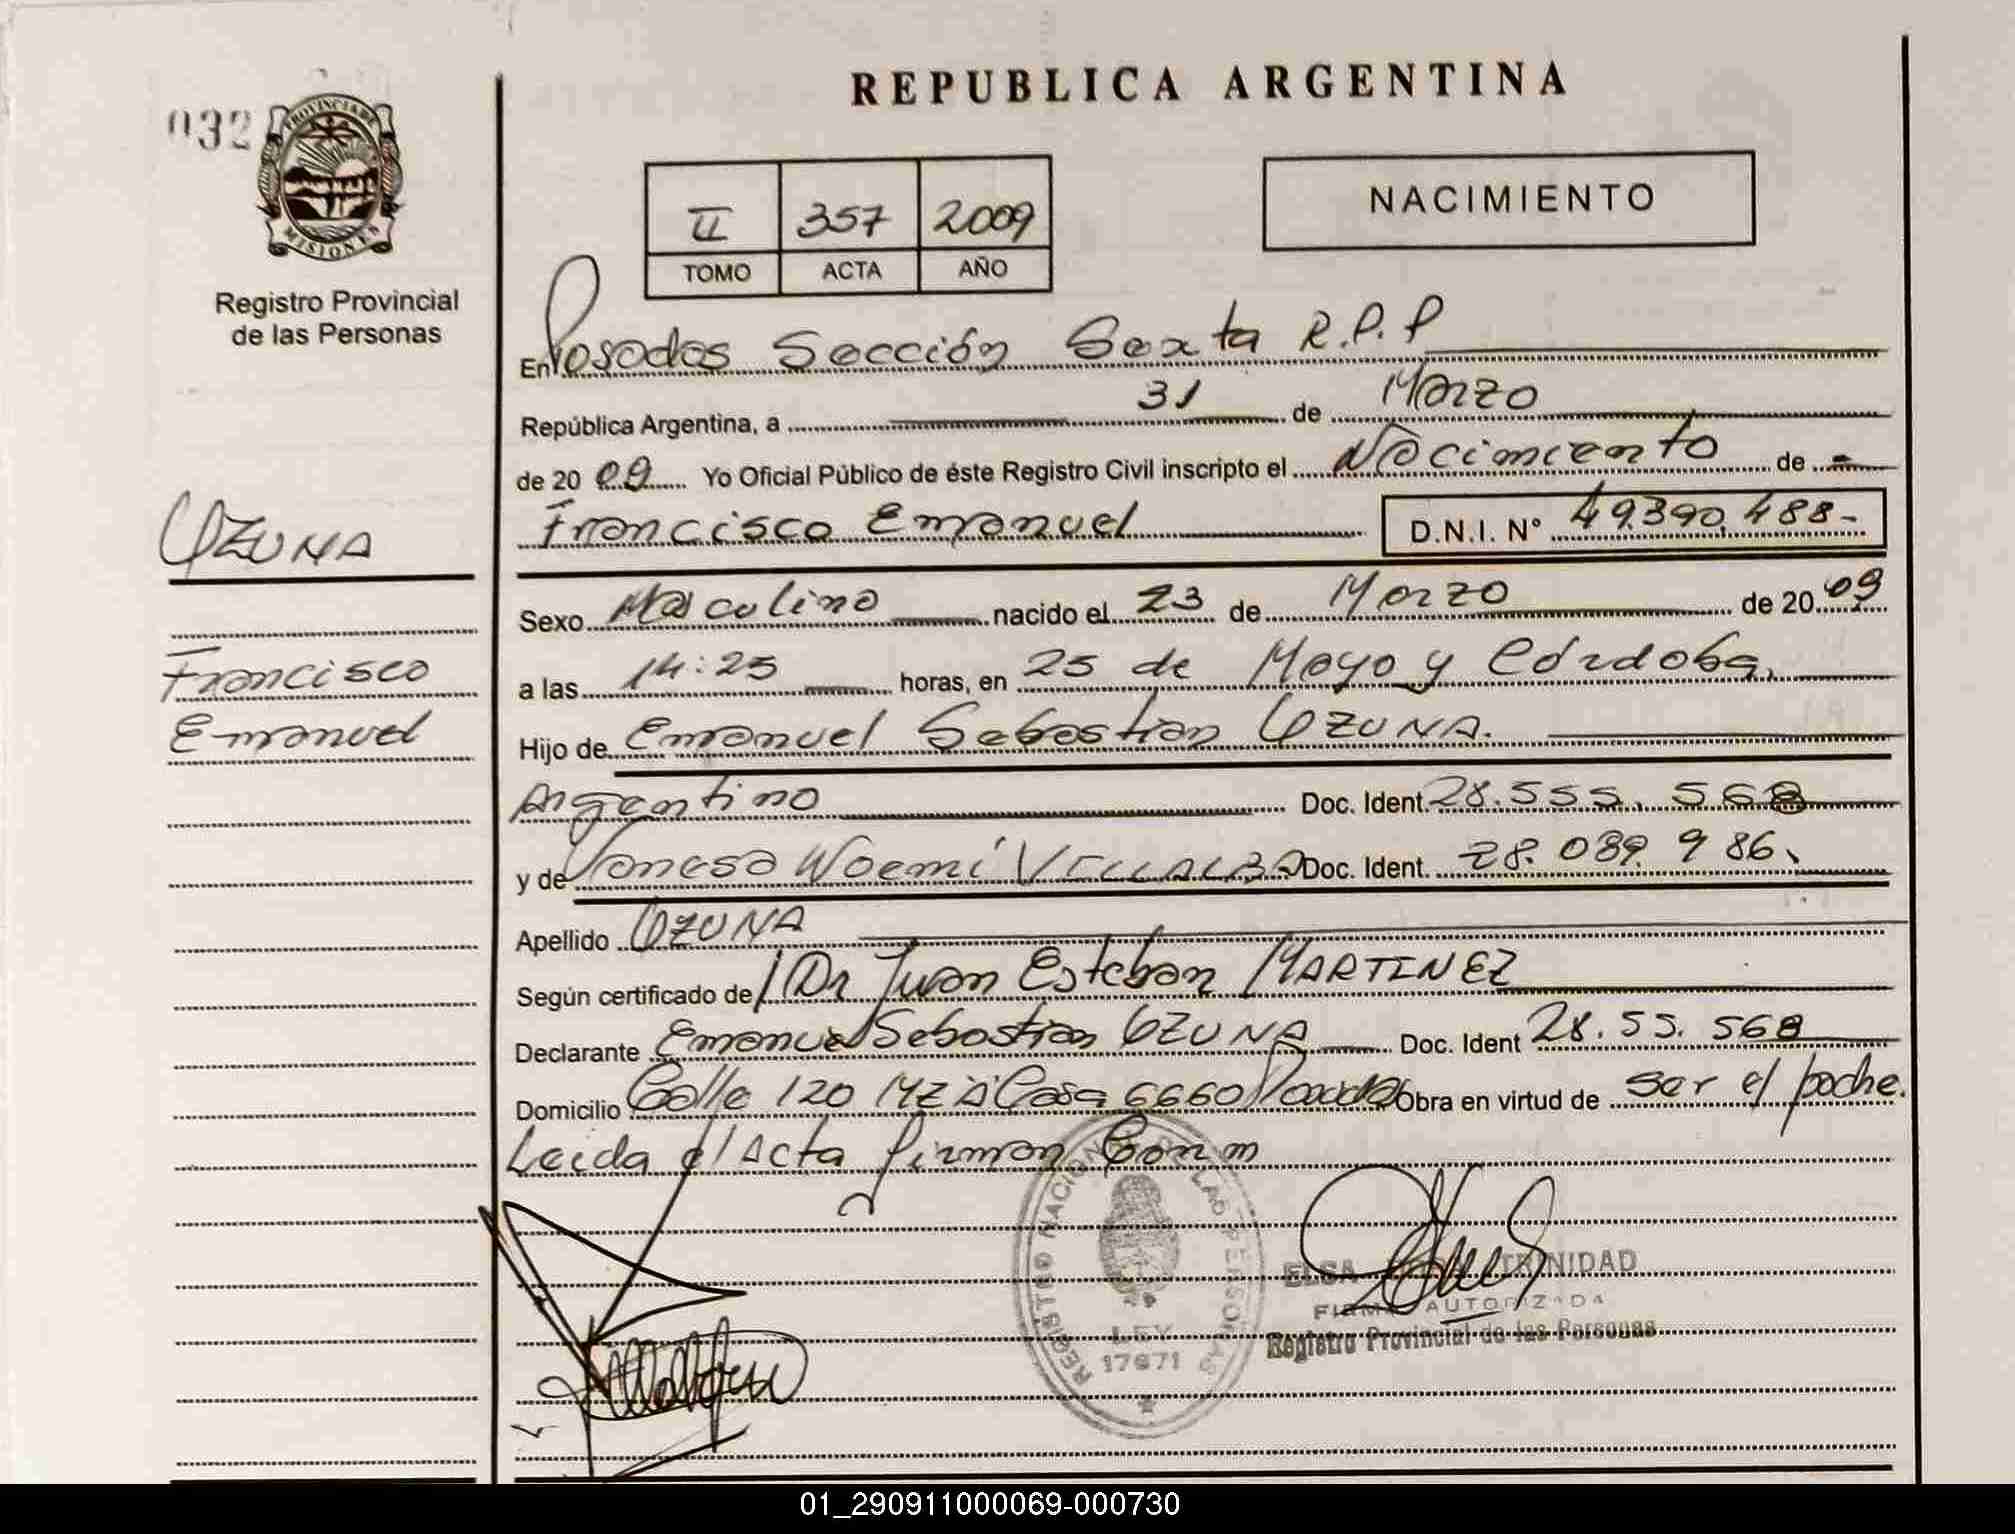 REPUBLICA ARGENTINA
032
PROVINCIA DE
MISIONES
Registro Provincial
de las Personas
II 357 2009
TOMO ACTA AÑO
NACIMIENTO
En Posadas Sección Sexta R.P.P
República Argentina, a 31 de Marzo
de 20 09 Yo Oficial Público de éste Registro Civil inscripto el Nacimiento de -
Francisco Emanuel D.N.I. N° 49.390.488-
OZUNA
Sexo Masculino nacido el 23 de Marzo de 20 09
Francisco
a las 14:25 horas, en 25 de Mayo y Córdoba,
Emanuel
Hijo de Emanuel Sebastian OZUNA.
Argentino Doc. Ident. 28.555.568
y de Vanesa Noemí VILLALBA Doc. Ident. 28.089.986.
Apellido OZUNA
Según certificado de Dr Juan Esteban MARTINEZ
Declarante Emanuel Sebastian OZUNA Doc. Ident 28.55.568
Domicilio Calle 120 MZ A Casa 6660 Posadas Obra en virtud de ser el padre.
Leida el Acta firman Con m
REGISTRO NACIONAL DE LAS PERSONAS
LEY
17671
ELSA TRINIDAD
FIRMA AUTORIZADA
Registro Provincial de las Personas
01_290911000069-000730